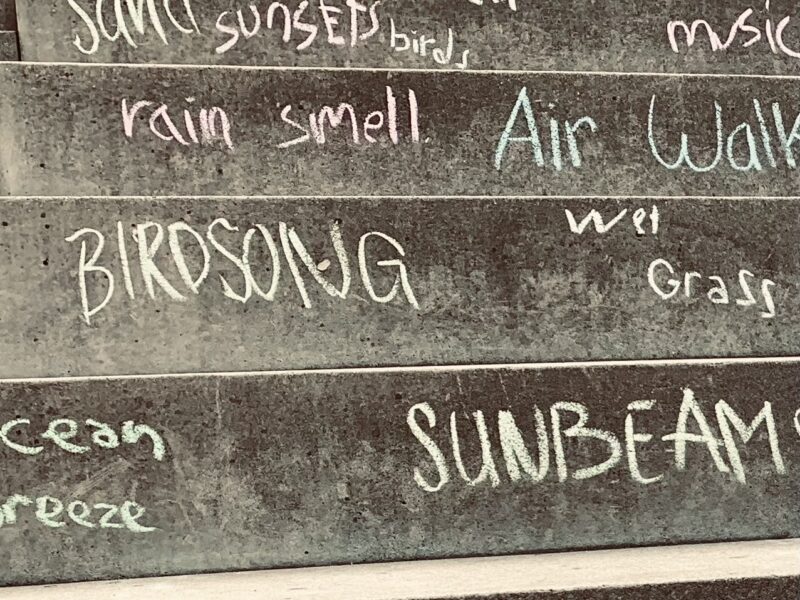 sand sunsets birds music
rain smell Air Walk
BIRDSONG wet Grass
cean SUNBEAM
reeze